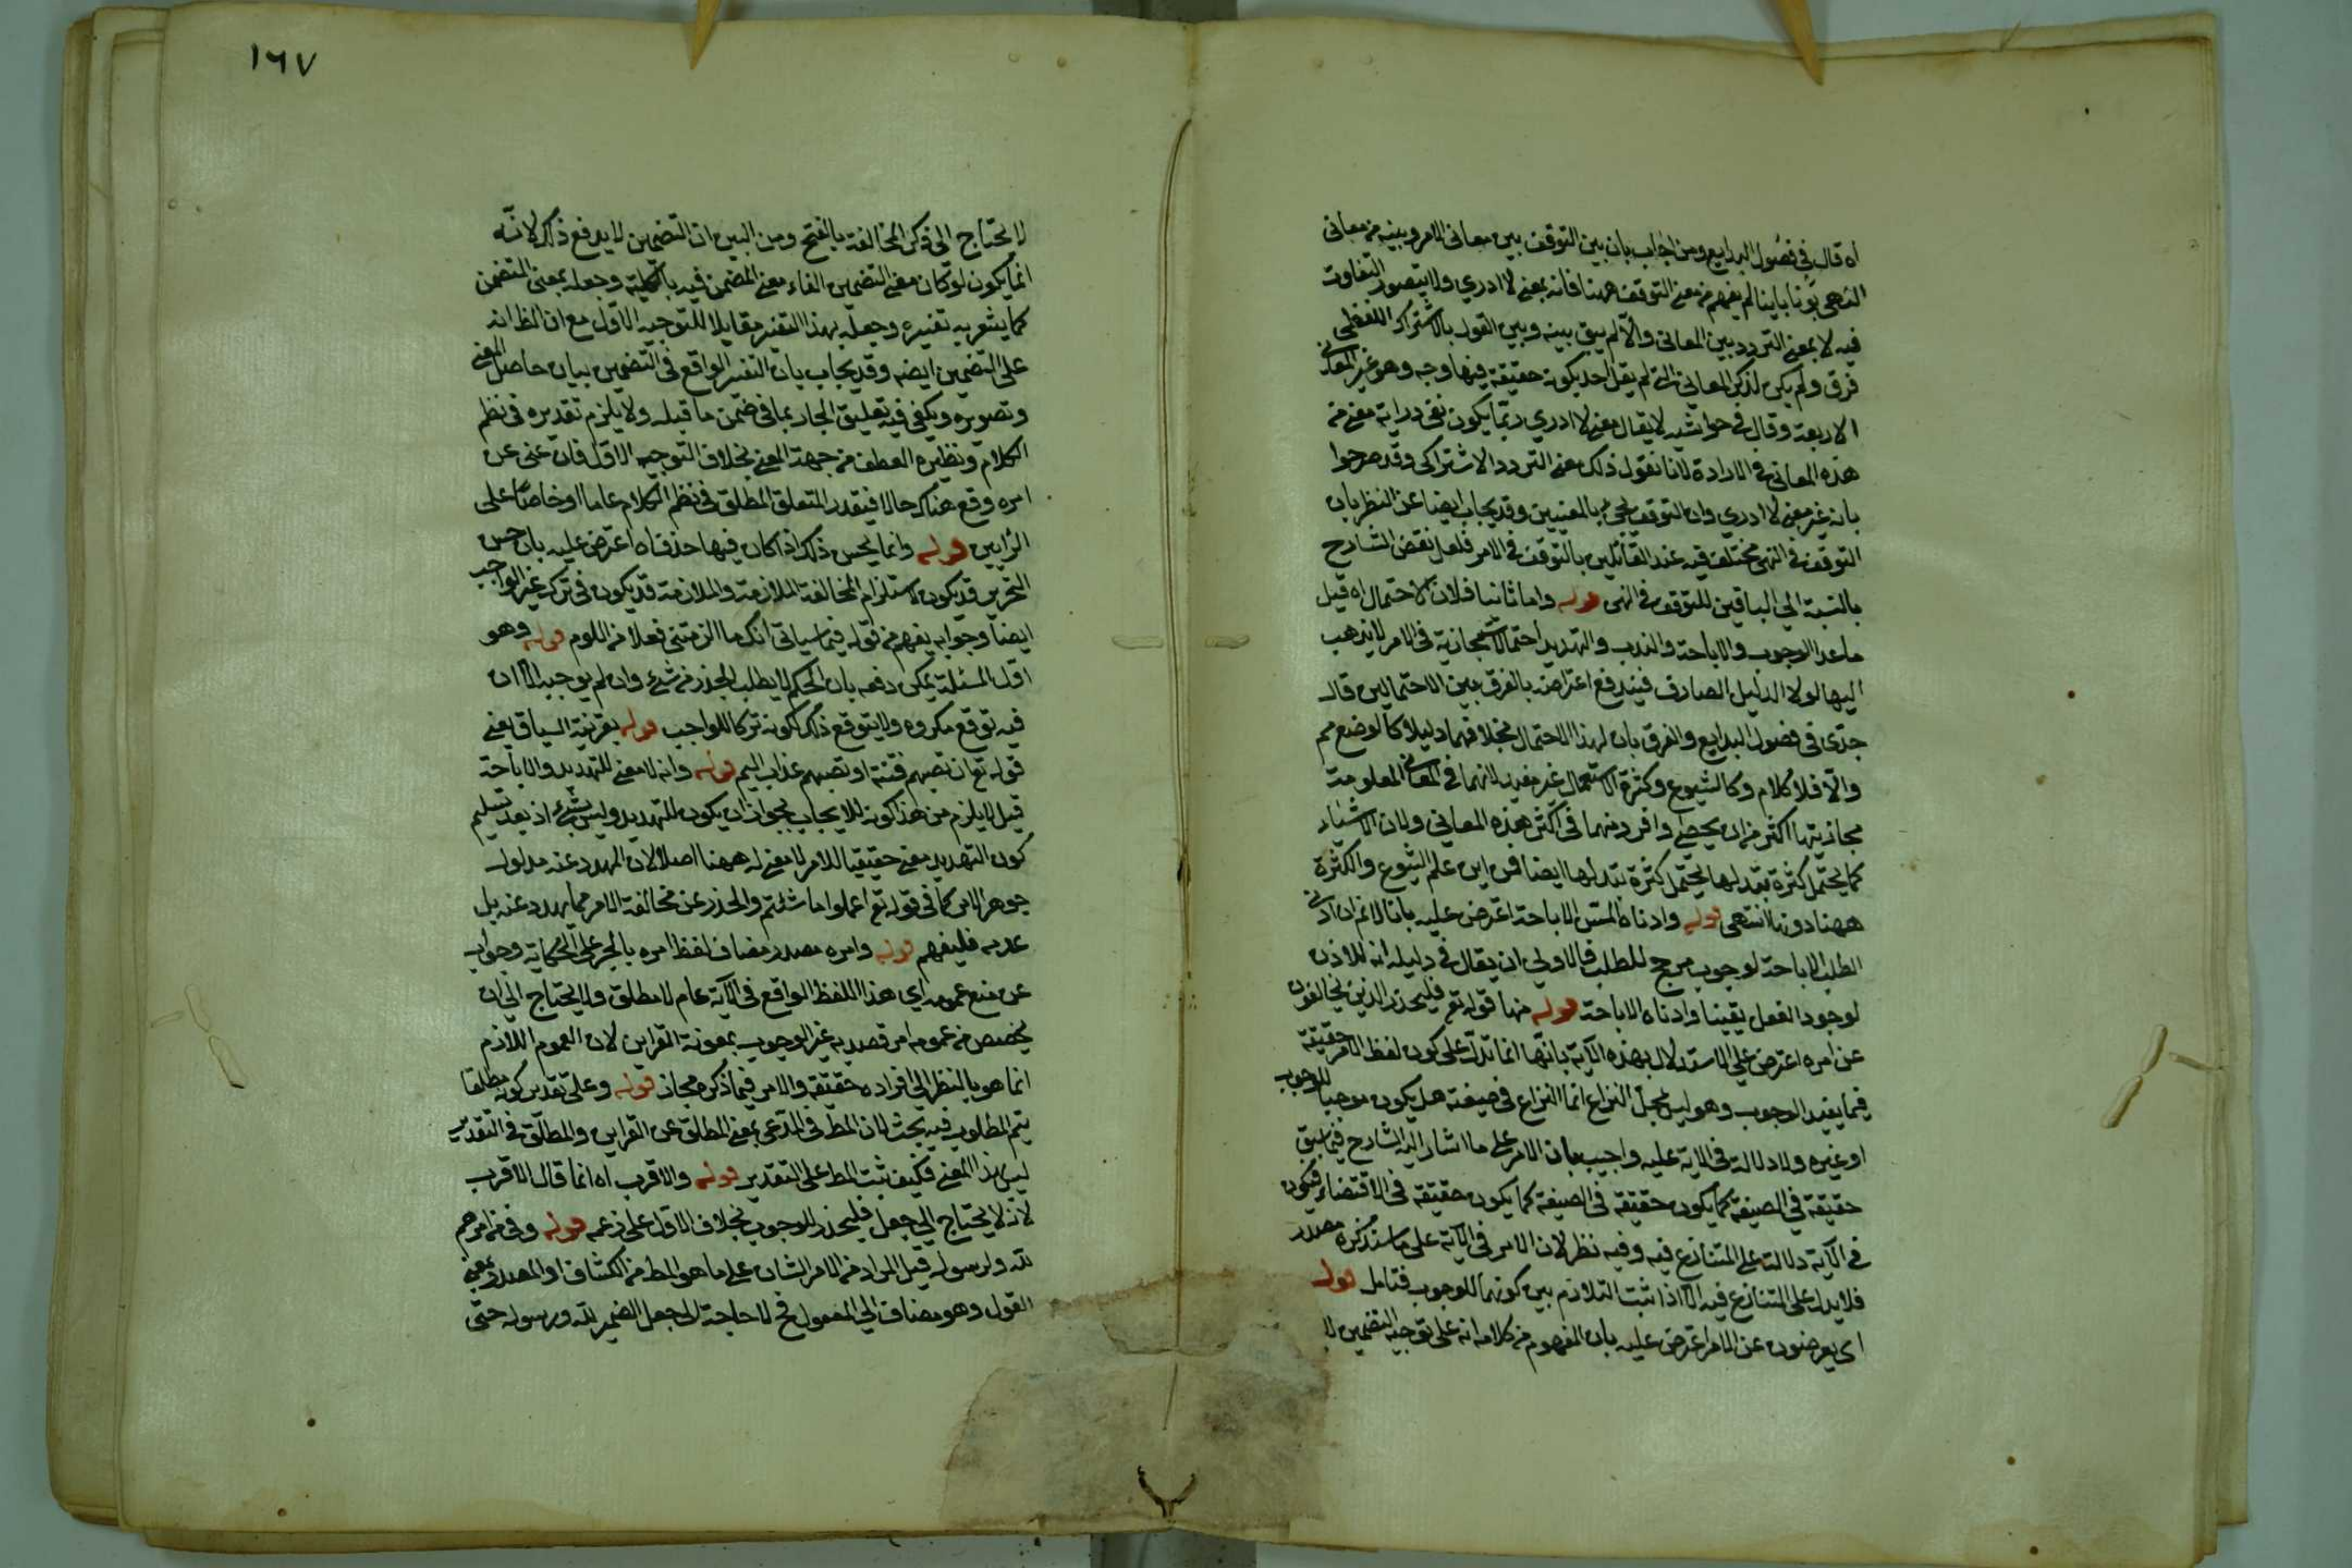 اه قال في فصول البدايع ومن اجاب بان بين التوقف بين معاني الامر وبينه من معاني
النهي بونا باينا لم يفهم من معنى التوقف ههنا فانه بمعنى لا ادري ولا يتصور التفاوت
فيه لا بمعنى التردد بين المعاني والا لم يبق بينه وبين القول بالاشتراك اللفظي
فرق ولم يكن لذكر المعاني التي لم يقل احد بكونه حقيقة فيها وجه وهو غير المعاني
الاربعة وقال في حواشيه لا يقال معنى لا ادري ربما يكون نفي دراية معنى من
هذه المعاني في الارادة لانا نقول ذلك معنى التردد الاشتراكي وقد صرحوا
بانه غير معنى لا ادري وان التوقف يجئ بالمعنيين وقد يجاب ايضا عن النظر بان
التوقف في النهي مختلف فيه عند القائلين بالتوقف في الامر فلعل نقض الشارح
بالنسبة الي الباقين للتوقف في النهي قوله واما ثانيا فلان الاحتمال اه قيل
ما عدا الوجوب والاباحة والندب والتهديد احتمالات مجازية في الامر لا يذهب
اليها لولا الدليل الصارف فيندفع اعتراضه بالفرق بين الاحتمالين قال
جدي في فصول البدايع والفرق بان لهذا الاحتمال مخلا فهما دليلا كالوضع مم
والا فلا كلام وكالشيوع وكثرة الاستعمال غير مفيد لانهما في المعاني المعلومة
مجازيتها اكثر من ان يحصى وافرد منهما في اكثر هذه المعاني ولان الاشياء
كما يحتمل كثرة تبدلها يحتمل كثرة تبدلها ايضا فمن اين علم الشيوع والكثرة
ههنا دونها انتهى قوله وادناه المتيقن الاباحة اعترض عليه بانا لا نم ان ادنى
الطلب الاباحة لوجوب مرجح للطلب فالاولى ان يقال في دليله انه للاذن
لوجود الفعل يقينا وادناه الاباحة قوله منها قوله تع فليحذر الذين يخالفون
عن امره اعترض على الاستدلال بهذه الآية بانها انما تدل على كون لفظ الامر حقيقة
فيما يفيد الوجوب وهو ليس محل النزاع انما النزاع في صيغته هل يكون موجبا للوجوب
او غيره ولا دلالة في الاية عليه واجيب بان الامر على ما اشار اليه الشارح فيما سبق
حقيقة في الصيغة كما يكون حقيقة في الصيغة كما يكون حقيقة في الاقتضاء فيكون
في الآية دلالة على المتنازع فيه وفيه نظر لان الامر في الآية على ما سنذكره مصدر
فلا يدل على المتنازع فيه الا اذا ثبت التلازم بين كونهما للوجوب فتامل قوله
اي يعرضون عن الامر اعترض عليه بان المفهوم من كلامه انه على توجيه التضمين لا
١٦٧
لا يحتاج الى ذكر المخالفة بالفتح ومن البين ان التضمين لا يدفع ذلك لانه
انما يكون لو كان معنى التضمين الغاء معنى المضمن فيه بالكلية وجعله بمعنى المتضمن
كما يشعر به تفسيره وجعله بهذا التفسير مقابلا للتوجيه الاول مع ان الظ انه
على التضمين ايضه وقد يجاب بان التفسير الواقع في التضمين بيان حاصل المعنى
وتصويره ويكفي فيه تعليق الجار بما في ضمن ما قبله ولا يلزم تقديره في نظم
الكلام ونظيره العطف من جهة المعنى بخلاف التوجيه الاول فان عنى عن
امره وقع هناك حالا فيقدر المتعلق المطلق في نظم الكلام عاما او خاصا على
الرايين قوله وانما يحسن ذلك اذا كان فيها حذف اه اعترض عليه بان حسن
التحرير قد يكون لاستلزام المخالفة الملازمة والملازمة قد يكون في ترك غير الواجب
ايضا وجوابه يفهم من قوله فيما سياتي انك ما الزمتني فعلا من اللوم قوله وهو
اول المسئلة يمكن دفعه بان الحكم لا يطلب الحذر من شئ وان لم يوجبه الا ان
فيه توقع مكروه ولا يتوقع ذلك لكونه تركا للواجب قوله بقرينة السياق يعني
قوله تع ان تصيبهم فتنة او تصيبهم عذاب اليم قوله وانه لا معنى للتهديد والاباحة
قيل لا يلزم من هذا كونه للايجاب لجواز ان يكون للتهديد وليس بشئ اذ بعد تسليم
كون التهديد معنى حقيقيا للامر لا معنى له ههنا اصلا لان المهدد عنه مدلول
جوهر الامر كما في قوله تع اعملوا ما شئتم والحذر عن مخالفة الامر مما يهدد عنه بل
عدمه فليفهم قوله وامره مصدر مضاف لفظ امره بالجر على الحكاية وجواب
عن منع عمومه اي هذا اللفظ الواقع في الآية عام لا مطلق ولا يحتاج الى ان
يخصص من عمومه امر قصد به غير الوجوب بمعونة القراين لان العموم اللازم
انما هو بالنظر الى افراده حقيقة والامر فيما ذكره مجاز قوله وعلى تقدير كونه مطلقا
يتم المطلوب فيه بحث لان المط في المدعى بمعنى المطلق عن القراين والمطلق في التقدير
ليس بهذا المعنى فكيف ثبت المط على التقدير قوله والاقرب اه انما قال الاقرب
لانه لا يحتاج الى جعل فليحذر للوجوب بخلاف الاول على زعمه قوله وفي من امرهم
لله ولرسوله قيل المراد من الامر الشان على ما هو المط من الكشاف او المصدر بمعنى
القول وهو مضاف الى المفعول فح لا حاجة الى جعل الضمير لله ورسوله حتى